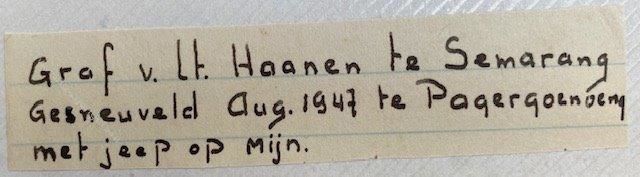 Graf v. Lt. Haanen te Semarang
Gesneuveld Aug. 1947 te Pagergoenoeng
met jeep op mijn.